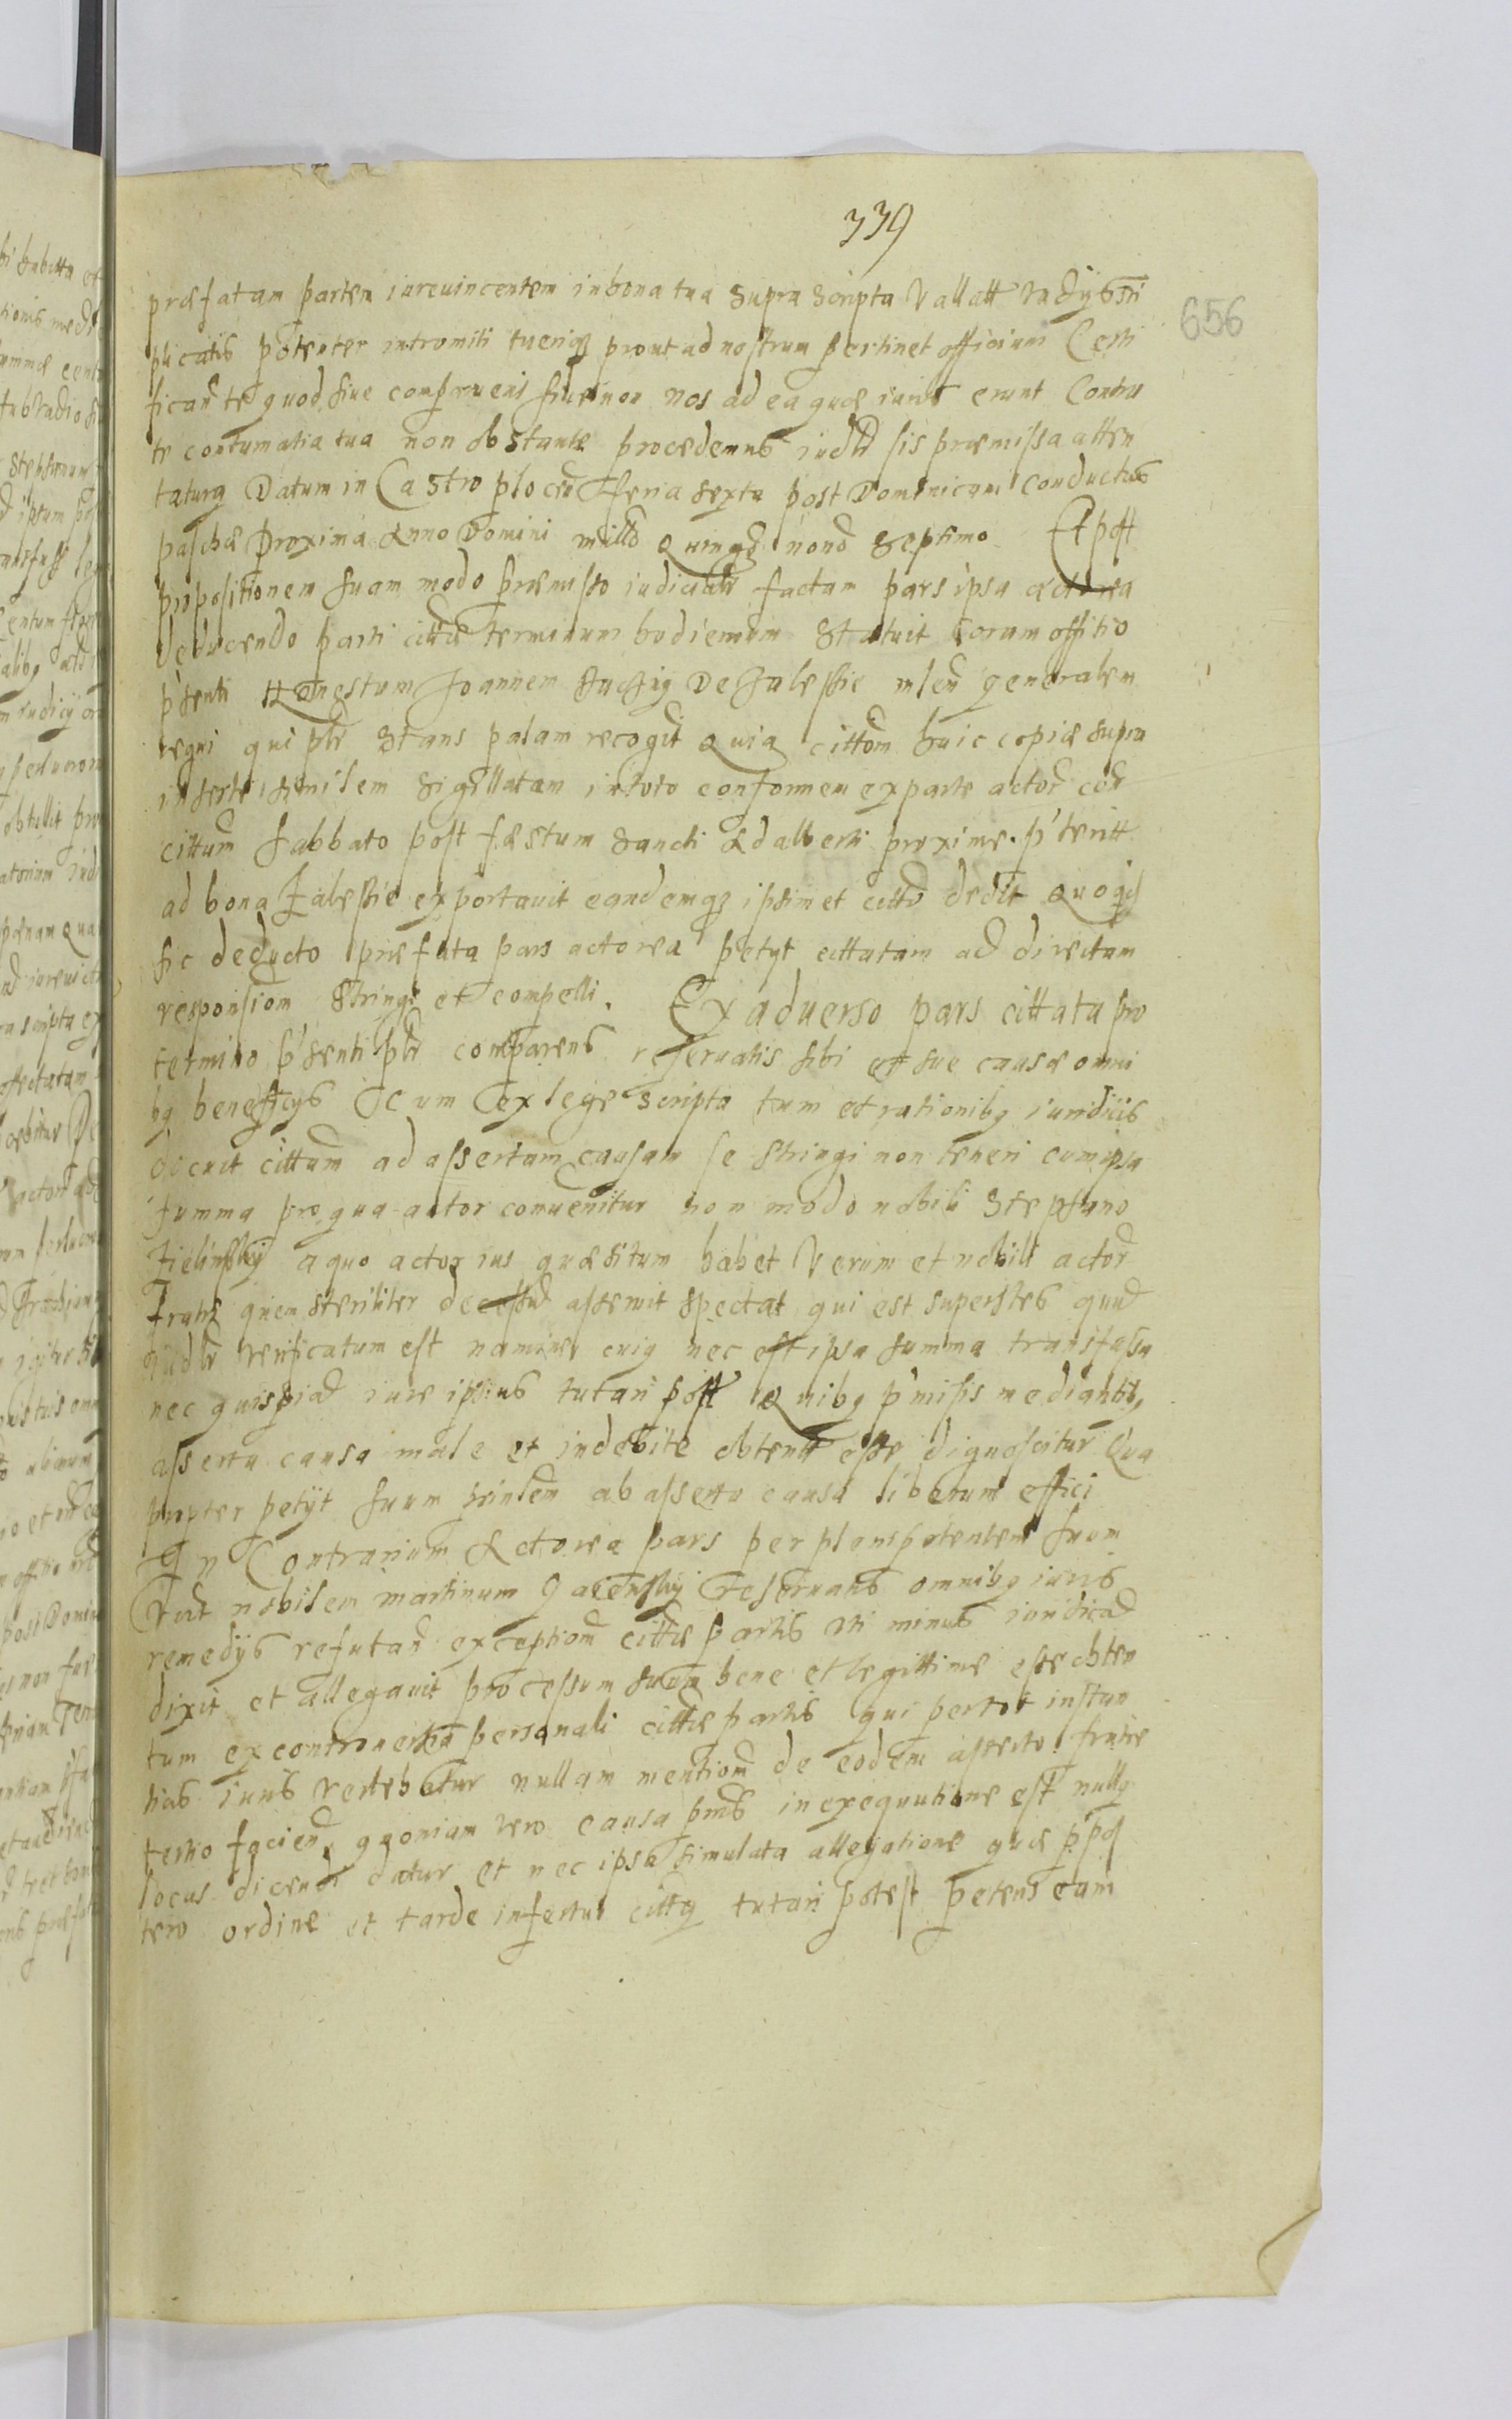 339
656
præfatam partem iurevincentem in bona tua supra scripta Vallatt vadÿs tri
plicatis potenter intromiti tueriqz prout ad nostrum pertinet officium Certi
fican te quod siue comparueris siue non nos ad ea quæ iuris erunt Contra
te contumatia tua non obstante procedemus iudr sis præmissa atten
taturq Datum in Castro plocen feria sexta post Dominicam Conductus
paschæ proxima Anno Domini millo Quingo nono Septimo Et post
propositionem suam modo præmisso iudicialr factam pars ipsa actorea
deducendo parti cittæ terminum hodiernum Statuit coram offitio
p'senti Honestum Joannem de generalem
regni qui plr Stans palam recogit Quia cittom huic copiæ supra
inserte similem sigillatam in toto conformem ex parte actor con
cittum Sabbato post fæstum Sancti Adalberti proxime p'teritt
ad bona exportauit eandemqz ipsimet citto dedit Quo
sic deducto præfata pars actorea petyt cittatam ad directam
responsiom stringi et compelli. Ex aduerso pars cittata pro
termino p'senti plr comparens reseruatis sibi et sue causæ omni
bq beneficys cum ex lege scripta tum et rationibq iuridicis
docuit cittum ad assertam causam se stringi non teneri cum ipsa
summa pro qua actor conuenitur non modo nobili Stephano
Zielinsky a quo actor ius quæsitum habet Verum et nobili actor
fratri quem steriliter decessud asseruit spectat qui est superstes quud
iudlr verificatum est cuiq nec est ipsa summa transfussa
nec quispiad iure ipsius tutari post Quibq p'misis mediantibq
asserta causa male et indebite obtenta esse dignoscitur Qua
propter petÿt suum ab asserta causa liberum effici
In Contrarium Actorea pars per plenipotentem suum
nobilem martinum Gacensky reseruatis omnibq iuris
remedÿs refutan exceptiom cittæ partis uti minus iuridicad
dixit et allegauit processum suum bene et legittime esse obten
tum ex controuersia personali cittæ partis qui per tot instan
tias iuris vertebatur nullam mentiom de eodem asserto fratre
tertio facien quoniam vero causa pns in exequutione est nullq
locus dicendi datur et nec ipsa simulata allegatione quæ
tero ordine et tarde infertur cittq tutari potest petens eam